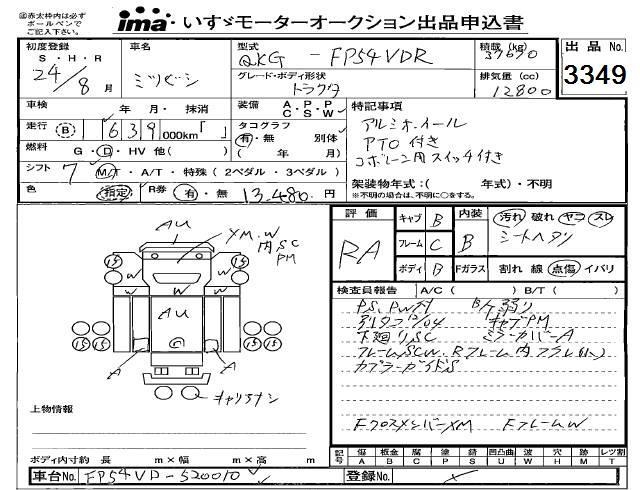 ㊟赤太枠内は必ず
ボールペンで
ご記入下さい。
ima・いすゞモーターオークション出品申込書
初度登録
S・H・R
24/8月
車名
ミツビシ
型式
QKG - FP54VDR
積載 (kg)
37690
グレード・ボディ形状
トラクタ
排気量 (cc)
12800
出品 No.
3349
車検
年 月・抹消
装備 A.P.P C S W
特記事項
アルミホイール
PTO付き
コボレーン用スイッチ付き
走行 (B) 1639 000km「 」
タコグラフ
有・無 別体
( 年 月)
燃料 G・D・HV 他( )
シフト 7 M/T・A/T・特殊 (2ペダル・3ペダル)
色 指定 R券 有・無 13,480円
架装物年式:( 年式)・不明
※不明の場合は、不明に○をする。
評価
RA
キャブ B
内装 B
汚れ 破れ ヤコ スレ
シートヘタリ
フレーム C
ボディ B
Fガラス 割れ 線 点傷 イバリ
AU
XM.W
内SC
PM
15 15
W W
W W
AU
15 15 15 15
A A
キャリアナシ
検査員報告 A/C ( ) B/T ( )
PS, PW付 B/ケ弱り
キャブPM
下廻りSC ミラーカバーA
フレームSCW. Rフレーム内
カプラーガイドS
FクロスメンバーXM FフレームW
上物情報
ボディ内寸約 長 m×幅 m×高 m
記号 傷 A 板金 B 腐 C 塗 P 錆 S 凹凸曲 U 波 W 穴 H 跡 M レツ割 T
車台No. FP54VD-520010
登録No.